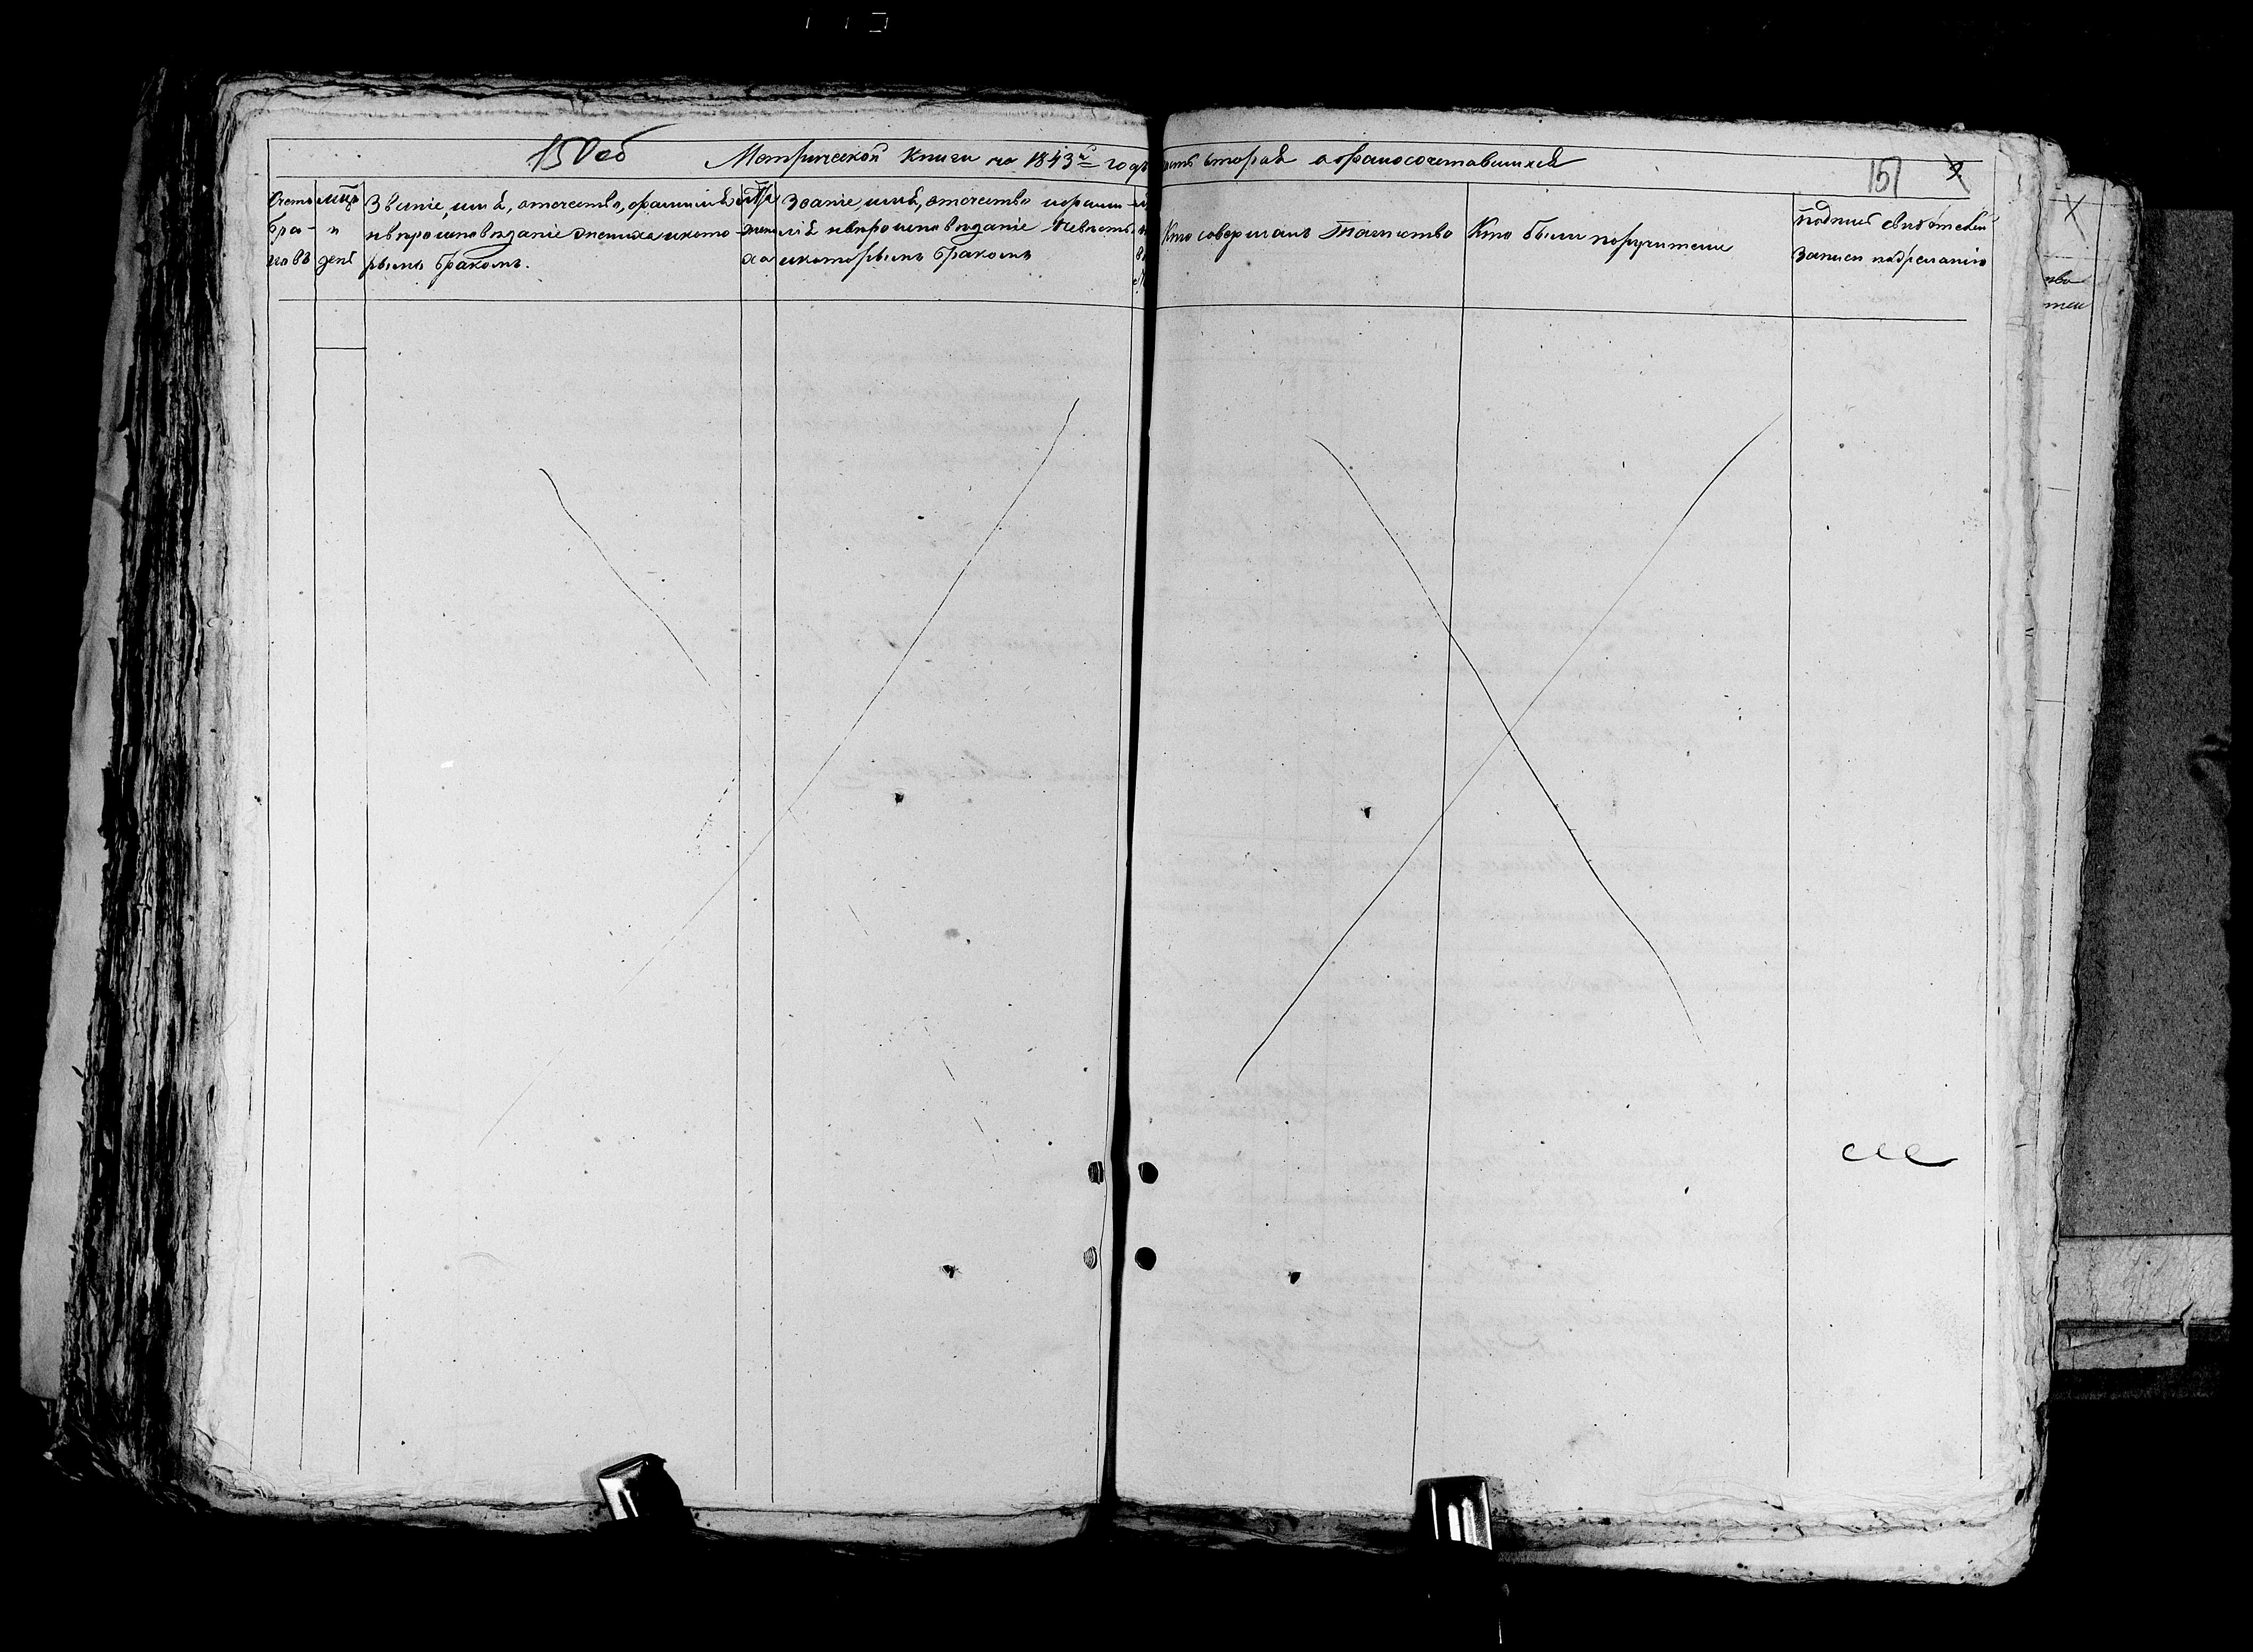 150об
Метрической Книги на 1843й годъ часть вторая о бракосочетавшихся
151
Счетъ браковъ
Мцъ и день
Званіе, имя, отечество, фамилія
и вероисповеданіе жениха и кото
рымъ бракомъ.
Званіе, имя, отечество и фамил
лія и вероисповеданіе невесты
и которымъ бракомъ
Кто совершалъ Таинство
Кто были поручители
Подпись свидетелей
записи по желанію